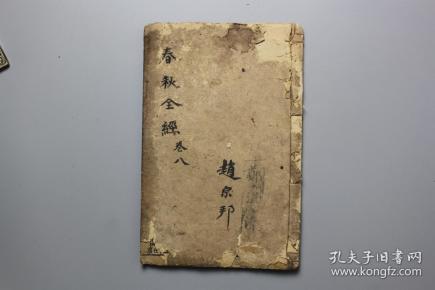 春秋全經
卷八
趙宗邦
孔夫子旧书网
www.kongfz.com